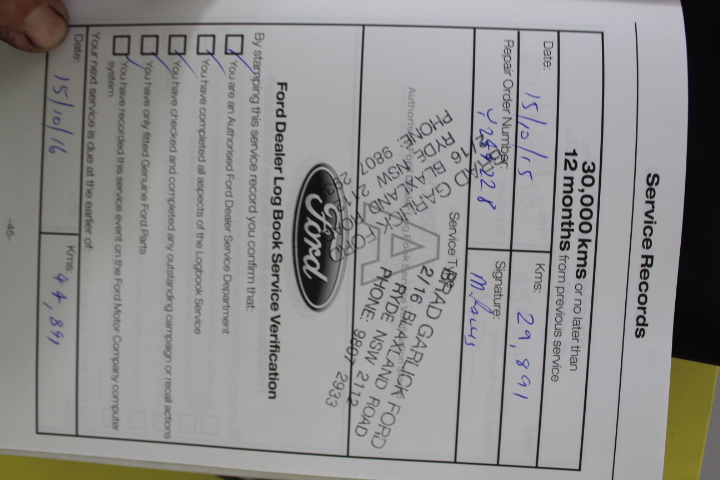 Service Records
30,000 kms or no later than
12 months from previous service
Date: 15/10/15 Kms: 29,891
Repair Order Number: Signature:
Service Type
A
BRAD GARLICK FORD
2/16 BLAXLAND ROAD
RYDE NSW 2112
PHONE: 9807 2933
BRAD GARLICK FORD
2/16 BLAXLAND ROAD
RYDE NSW 2112
PHONE: 9807 2933
Ford
Ford Dealer Log Book Service Verification
By stamping this service record you confirm that:
You are an Authorised Ford Dealer Service Department
You have completed all aspects of the Logbook Service
You have checked and completed any outstanding campaign or recall actions
You have only fitted Genuine Ford Parts
You have recorded this service event on the Ford Motor Company computer
system
Your next service is due at the earlier of:
Date: 15/10/16 Kms: 44,891
-45-